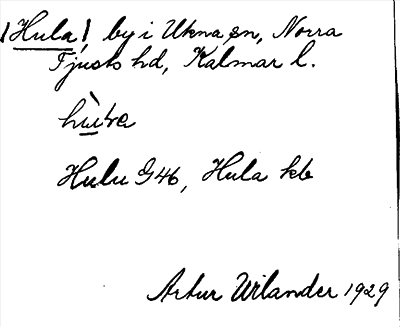 /Hula/ by i Ukna sn, Norra
Tjusts hd, Kalmar l.
Hulu G46, Hula kb
Artur Wilander 1929